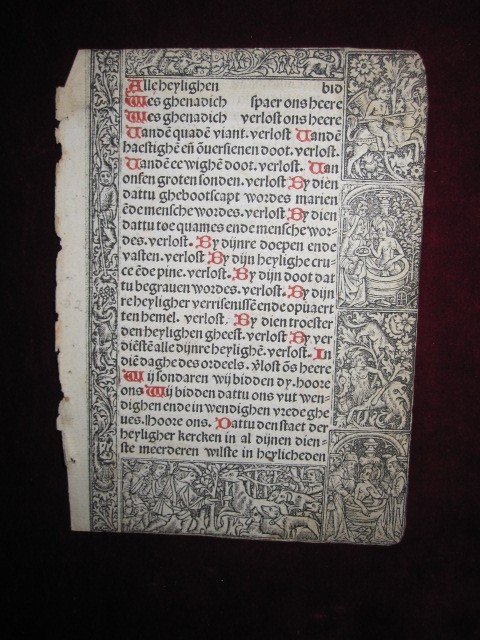 Alle heylighen bid
Wes ghenadich spaer ons heere
Wes ghenadich verlost ons heere
Vandē quadē viant. verlost Vandē
haestighē eñ ōuersienen doot. verlost.
Vandē ee wighē doot. verlost. Van
onsen groten sonden. verlost By dien
dattu ghebootscapt wordes marien
ēde mensche wordes. verlost. By dien
dattu toe quames ende mensche wor-
des. verlost. By dijnre doepen ende
vasten. verlost By dijn heylighe cru-
ce ēde pine. verlost. By dijn doot dat
tu begrauen wordes. verlost. By dijn
re heyligher verrisenisse ende opuaert
ten hemel. verlost. By dien troester
den heylighen gheest. verlost By ver
diēstē alle dijnre heylighē. verlost. In
diē daghe des ordeels. v̄lost ōs heere
Wij sondaren wij bidden dy. hoore
ons Wij bidden dattu ons vut wen-
dighen ende in wendighen vrede ghe
ues. Hoore ons. Dattu den staet der
heyligher kercken in al dijnen dien-
ste meerderen wilste in heylicheden